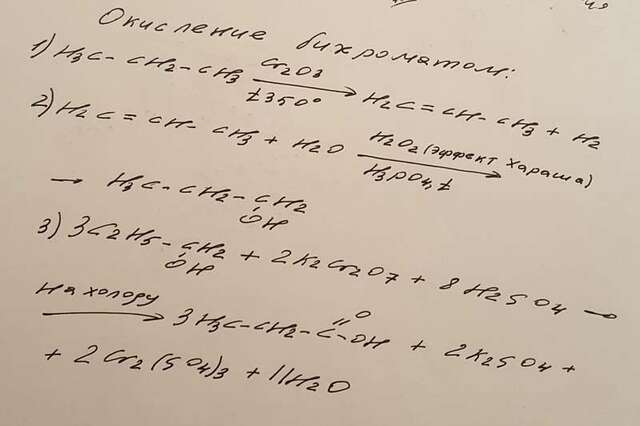 Окисление бихроматом:
1) H3C - CH2 - CH3 Cr2O3 t350° → H2C = CH - CH3 + H2
2) H2C = CH - CH3 + H2O H2O2 (эффект Хараша) H3PO4, t →
→ H3C - CH2 - CH2
OH
3) 3C2H5 - CH2 + 2K2Cr2O7 + 8H2SO4 →
OH
на холоду → 3H3C - CH2 - C - OH + 2K2SO4 +
O
+ 2Cr2(SO4)3 + 11H2O